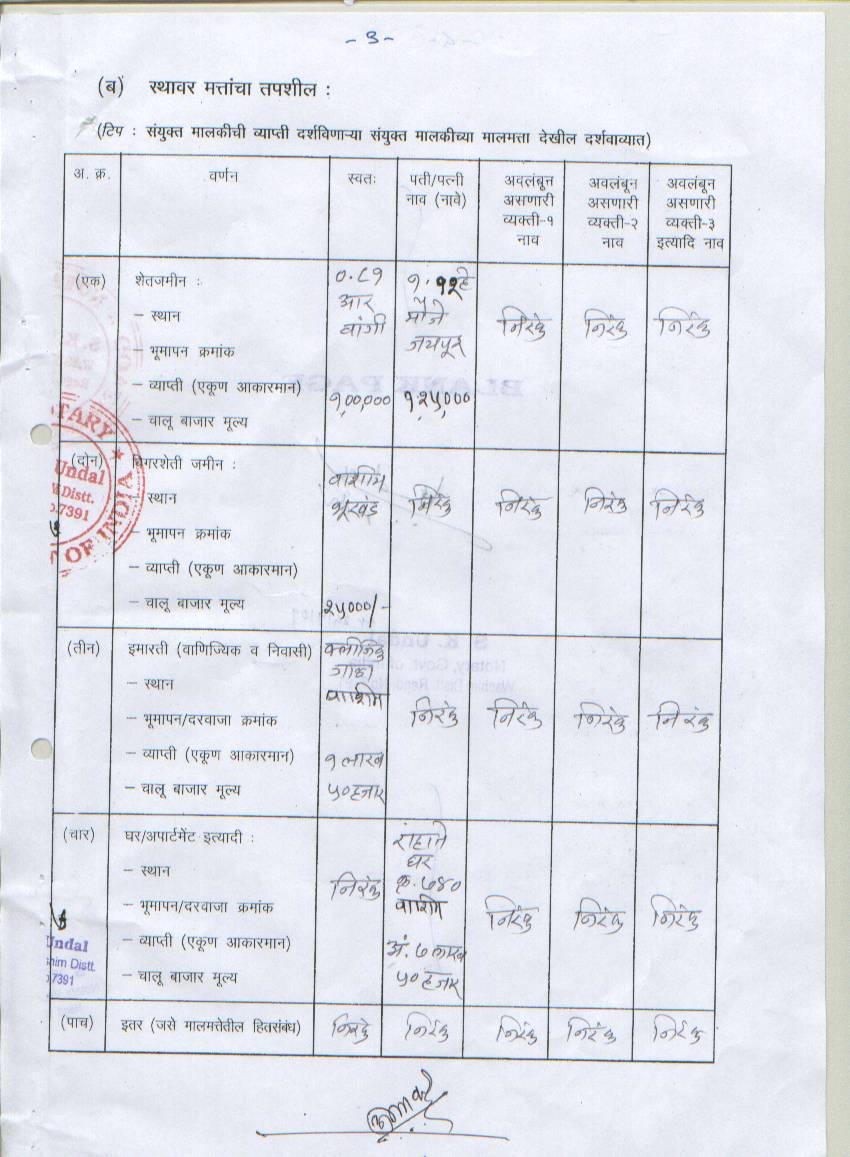 - ३ -
(ब) स्थावर मत्तांचा तपशील :
(टिप : संयुक्त मालकीची व्याप्ती दर्शविणाऱ्या संयुक्त मालकीच्या मालमत्ता देखील दर्शवाव्यात)
अ. क्र. वर्णन स्वतः पती/पत्नी नाव (नावे) अवलंबून असणारी व्यक्ती-१ नाव अवलंबून असणारी व्यक्ती-२ नाव अवलंबून असणारी व्यक्ती-३ इत्यादि नाव
(एक) शेतजमीन : ०.८१ १.१२हे
– स्थान आर मौजे निरंक निरंक निरंक
– भूमापन क्रमांक वांगी जयपूर
– व्याप्ती (एकूण आकारमान) १,००,००० १,२५,०००
– चालू बाजार मूल्य
(दोन) बिगरशेती जमीन : वाशीम
– स्थान भूखंड निरंक निरंक निरंक निरंक
– भूमापन क्रमांक
– व्याप्ती (एकूण आकारमान)
– चालू बाजार मूल्य २५०००/-
(तीन) इमारती (वाणिज्यिक व निवासी) क्लीनिक
– स्थान गाळा
– भूमापन/दरवाजा क्रमांक वाशीम निरंक निरंक निरंक निरंक
– व्याप्ती (एकूण आकारमान) १ लाख
– चालू बाजार मूल्य ५० हजार
(चार) घर/अपार्टमेंट इत्यादी : राहाते
– स्थान निरंक घर
– भूमापन/दरवाजा क्रमांक क्र. ७४० वाशीम निरंक निरंक निरंक
– व्याप्ती (एकूण आकारमान) अं. ७ लाख
– चालू बाजार मूल्य ५० हजार
(पाच) इतर (जसे मालमत्तेतील हितसंबंध) निरंक निरंक निरंक निरंक निरंक
TARY
Undal
Distt.
7391
OF INDIA
Undal
him Distt.
7391